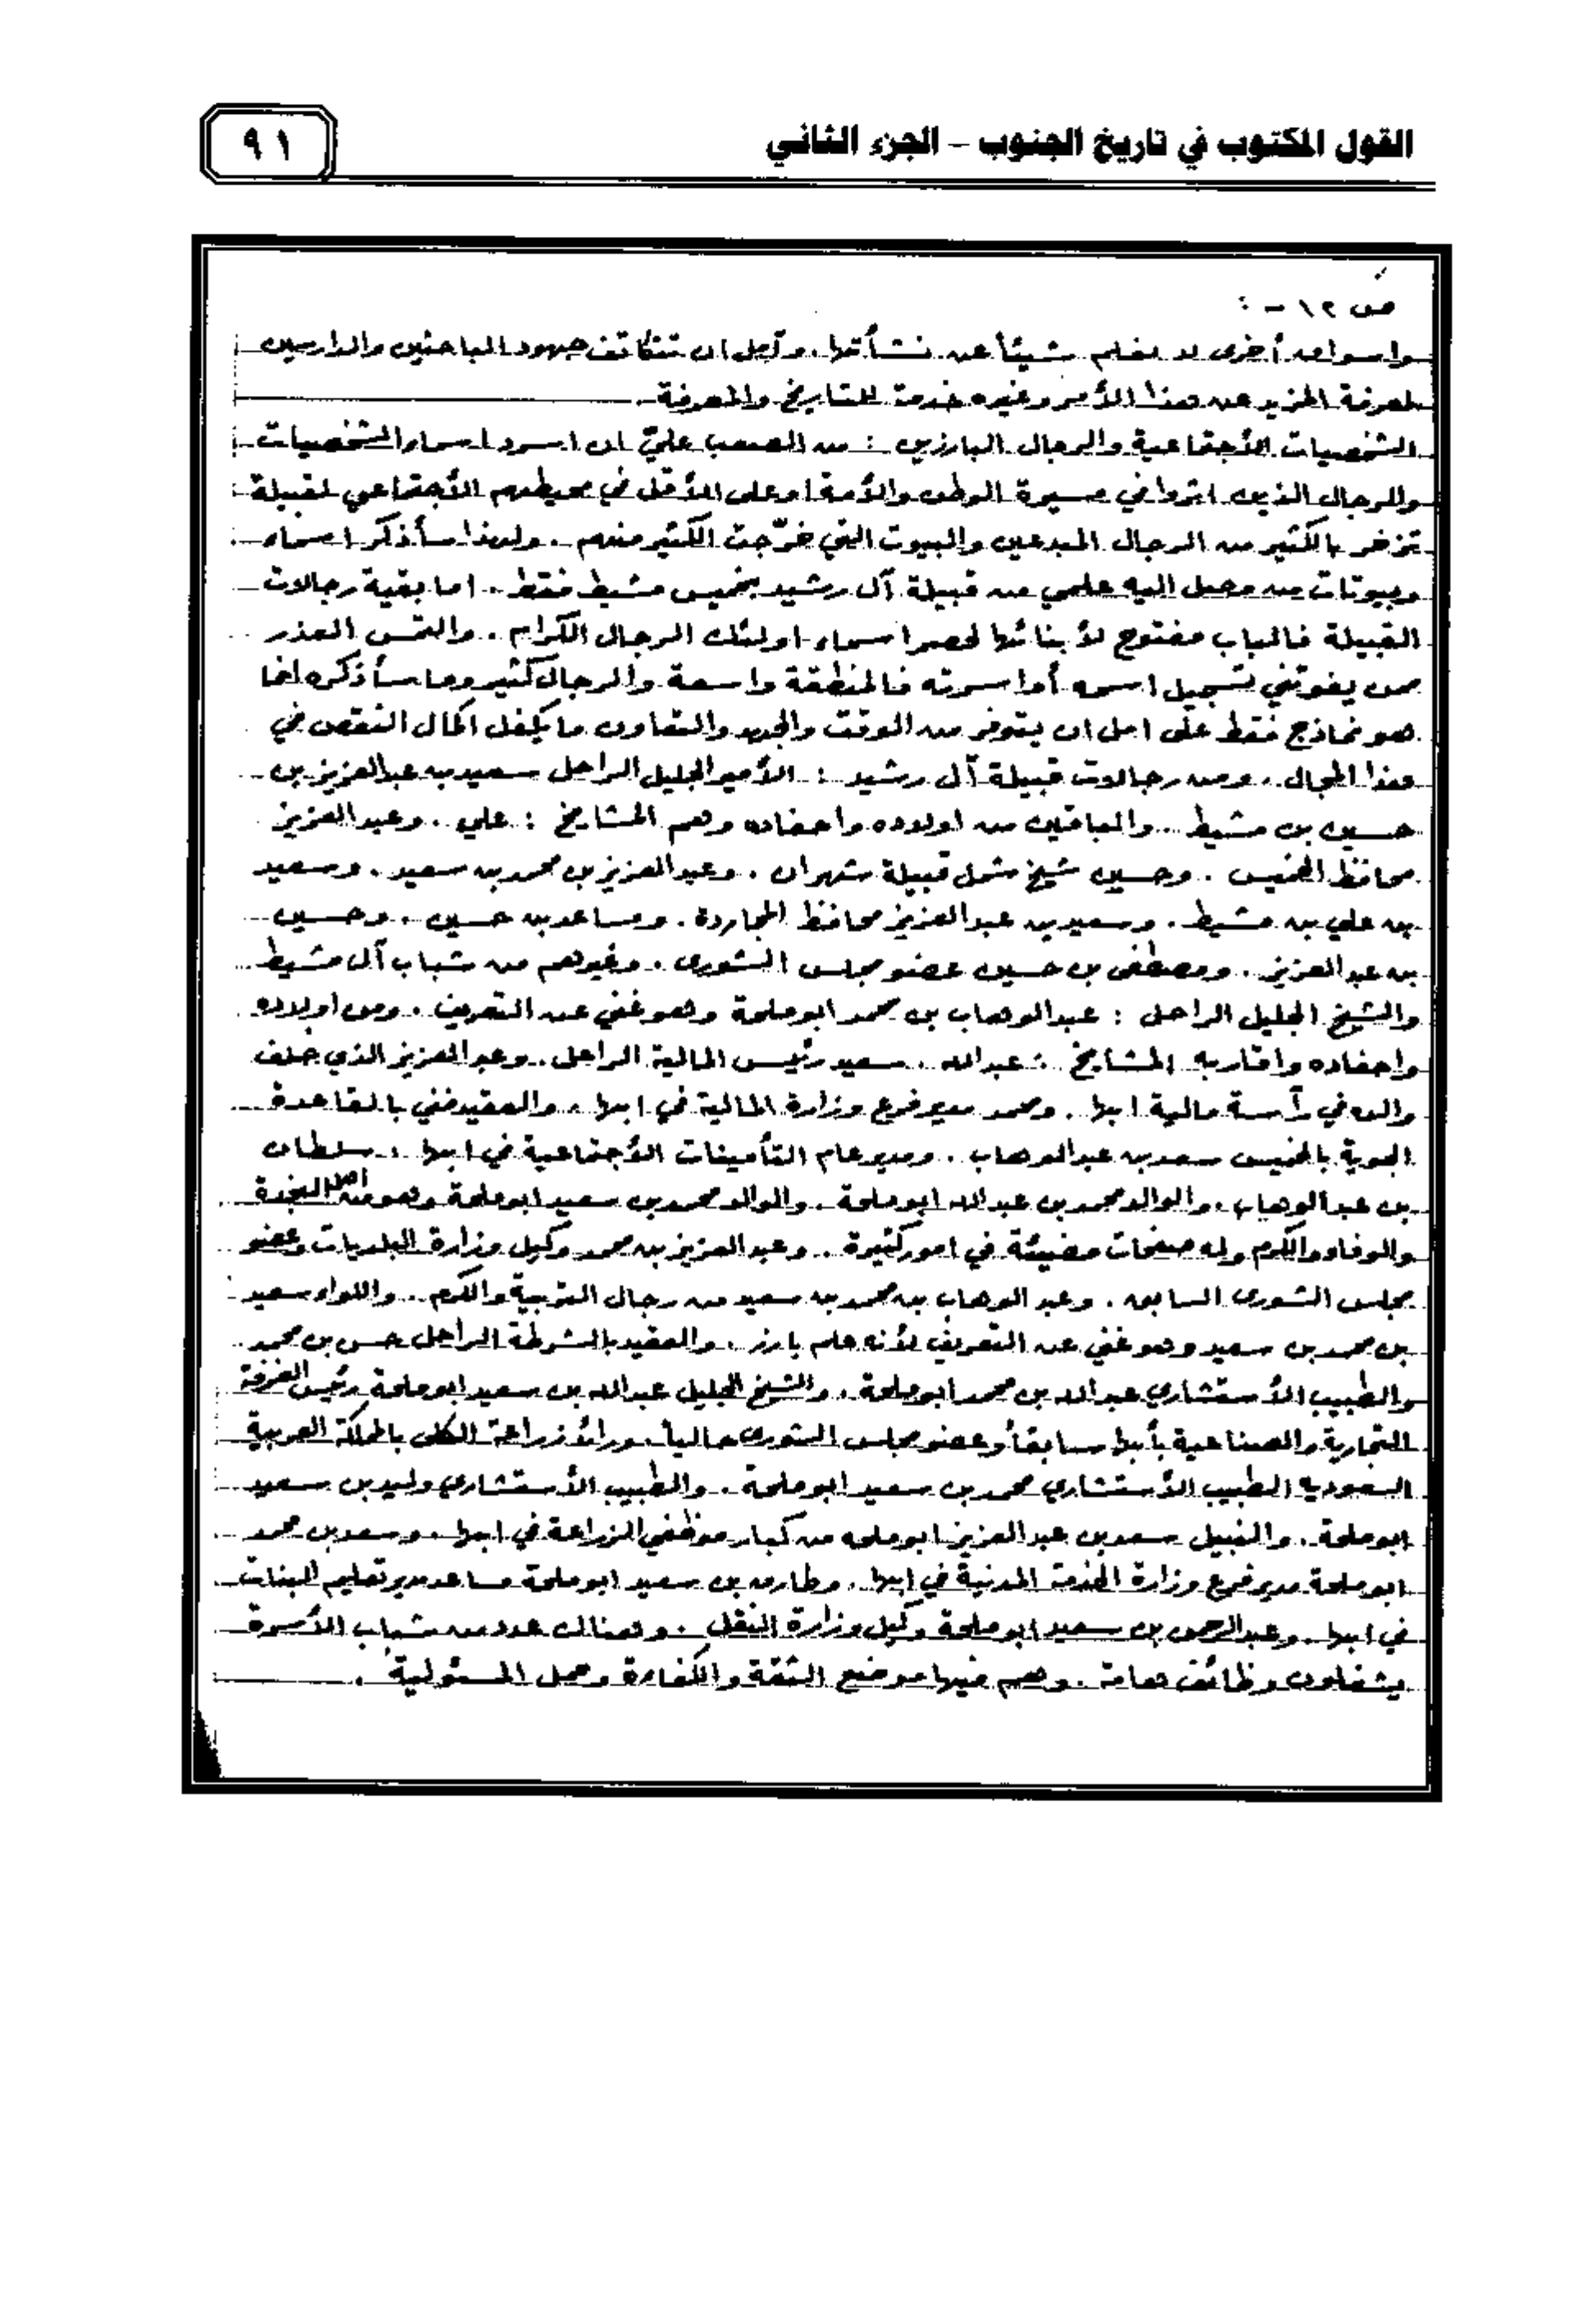 القول المكتوب في تاريخ الجنوب - الجزء الثاني
٩١
ص ١٢ - :
واسواق أخرى لا نعلم شيئاً عن نشأتها. ونأمل ان تتكاتف جهود الباحثين والدارسين
لمعرفة المزيد عن هذا الأمر وغيره خدمة للتاريخ والمعرفة.
الشخصيات الأجتماعية والرجال البارزين : من الصعب عليّ ان اسرد اسماء الشخصيات
والرجال الذين اثروا في مسيرة الوطن والأمة او على الأقل في محيطهم الأجتماعي لقبيلة
تزخر بالكثير من الرجال المبدعين والبيوت التي خرّجت الكثير منهم . ولهذا سأذكر اسماء
وبيوتات من وصل اليه علمي من قبيلة آل رشيد بخميس مشيط فقط . اما بقية رجالات
القبيلة فالباب مفتوح لأبنائها لحصر اسماء اولئك الرجال الكرام . والتمس العذر
ممن يفوتني تسجيل اسمه أو اسرته فالمنطقة واسعة والرجال كثير وما سأذكره انما
هو نماذج فقط على امل ان يتوفر من الوقت والجهد والتعاون ما يكفل اكمال النقص في
هذا المجال . ومن رجالات قبيلة آل رشيد : الأمير الجليل الراحل سعيد بن عبدالعزيز بن
حسين بن مشيط .. والباقين من اولاده واحفاده وهم المشايخ : علي . وعبدالعزيز
محافظ الخميس . وحسين شيخ شمل قبيلة شهران . وعبدالعزيز بن محمد بن سعيد . وسعيد
بن علي بن مشيط . وسعيد بن عبدالعزيز محافظ المجاردة . ومساعد بن حسين . وحسين
بن عبدالعزيز . ومصطفى بن حسين عضو مجلس الشورى . وغيرهم من شباب آل مشيط
والشيخ الجليل الراحل : عبدالوهاب بن محمد ابوملحة وهو غني عن التعريف . ومن اولاده
واحفاده واقاربه المشايخ : عبدالله . سعيد رئيس المالية الراحل . وعبدالعزيز الذي خلف
والده في رآسة مالية ابها . ومحمد مدير فرع وزارة المالية في ابها . والعقيد فني بالقاعدة
الجوية بالخميس سعد بن عبدالوهاب . ومدير عام التأمينات الأجتماعية في ابها : سلطان
بن عبدالوهاب . والوالد محمد بن عبدالله ابوملحة . والوالد محمد بن سعيد ابوملحة وهو من اهل النجدة
والوفاء والكرم وله صفحات مضيئة في امور كثيرة . وعبدالعزيز بن محمد وكيل وزارة البلديات وعضو
مجلس الشورى السابق . وعبدالوهاب بن محمد بن سعيد من رجال التربية والكرم .. واللواء سعيد
بن محمد بن سعيد وهو غني عن التعريف لأنه علم بارز . والعقيد بالشرطة الراحل حسن بن محمد
والطبيب الأستشاري عبدالله بن محمد ابوملحة . والشيخ الجليل عبدالله بن سعيد ابوملحة رئيس الغرفة
التجارية والصناعية بأبها سابقاً وعضو مجلس الشورى حالياً . ورائد زراعة الكلى بالمملكة العربية
السعودية الطبيب الأستشاري محمد بن سعيد ابوملحة . والطبيب الأستشاري وليد بن سعيد
ابوملحة . والنبيل سعد بن عبدالعزيز ابوملحه من كبار موظفي الزراعة في ابها . وسعد بن محمد
ابوملحة مدير فرع وزارة الخدمة المدنية في ابها . وطارق بن سعيد ابوملحة مساعد مدير تعليم البنات
في ابها . وعبدالرحمن بن سعيد ابوملحة وكيل وزارة النقل . وهنالك عدد من شباب الأسرة
يشغلون وظائف هامة . وهم فيها موضع الثقة والكفاءة وحمل المسئولية .